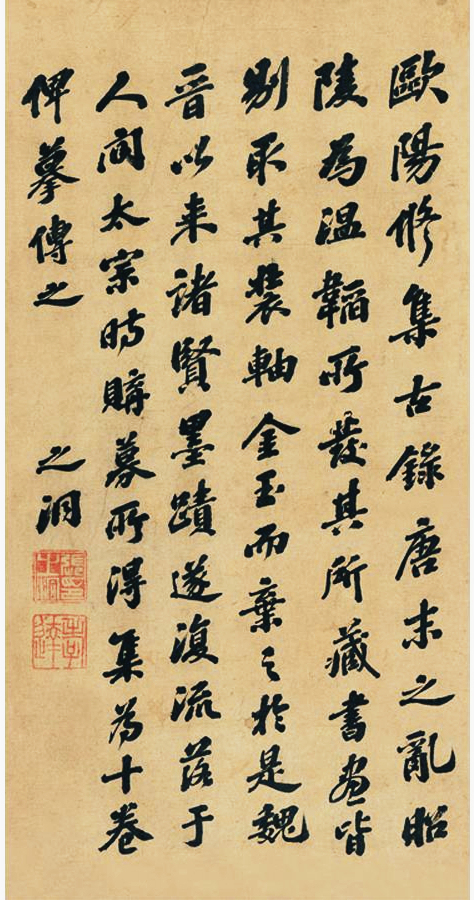 歐陽修集古錄唐末之亂昭
陵為温韜所發其所藏書畫皆
剔取其裝軸金玉而棄之於是魏
晉以来諸賢墨蹟遂復流落于
人間太宗時購募所得集為十卷
俾摹傳之
之洞
張印之洞
孝達